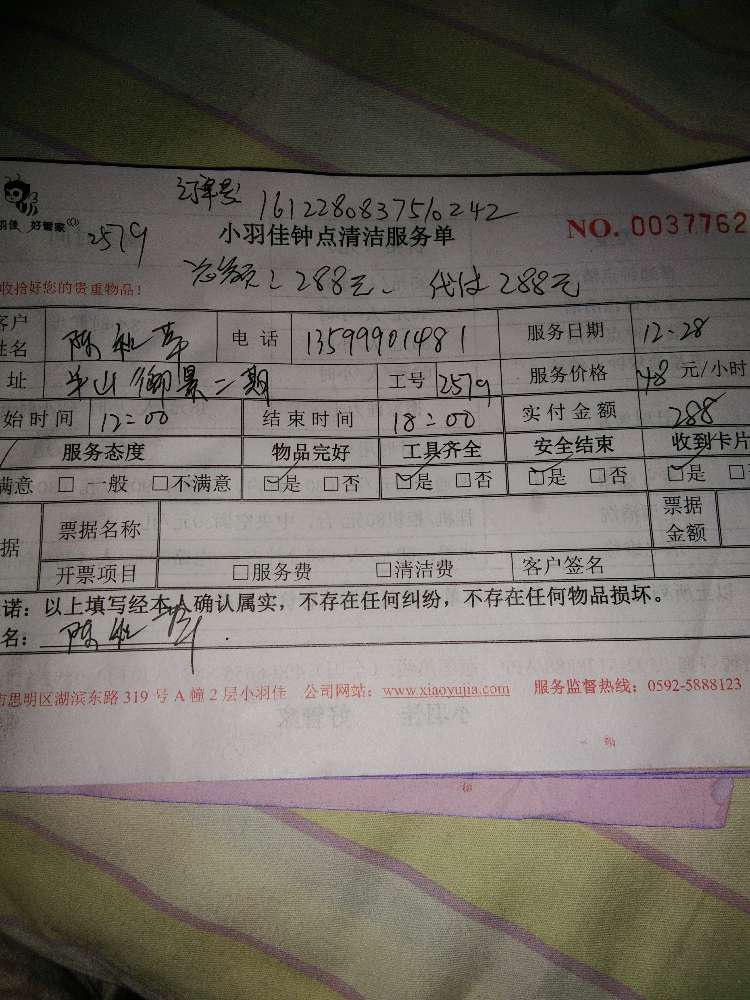 订单号 1612280837510242
羽佳 好管家 2579
小羽佳钟点清洁服务单 NO. 0037762
总额：288元、 代付288元
收拾好您的贵重物品！
客户姓名 陈 电话 13599901481 服务日期 12-28
址 半山御景二期 工号 2579 服务价格 48 元/小时
始时间 12:00 结束时间 18:00 实付金额 288
服务态度 物品完好 工具齐全 安全结束 收到卡片
满意 □ 一般 □不满意 ☑是 □否 ☑是 □否 ☑是 □否 ☑是 □
据 票据名称 票据金额
开票项目 □服务费 □清洁费 客户签名
诺：以上填写经本人确认属实，不存在任何纠纷，不存在任何物品损坏。
名：陈
市思明区湖滨东路 319 号 A 幢 2 层小羽佳 公司网站：www.xiaoyujia.com 服务监督热线：0592-5888123